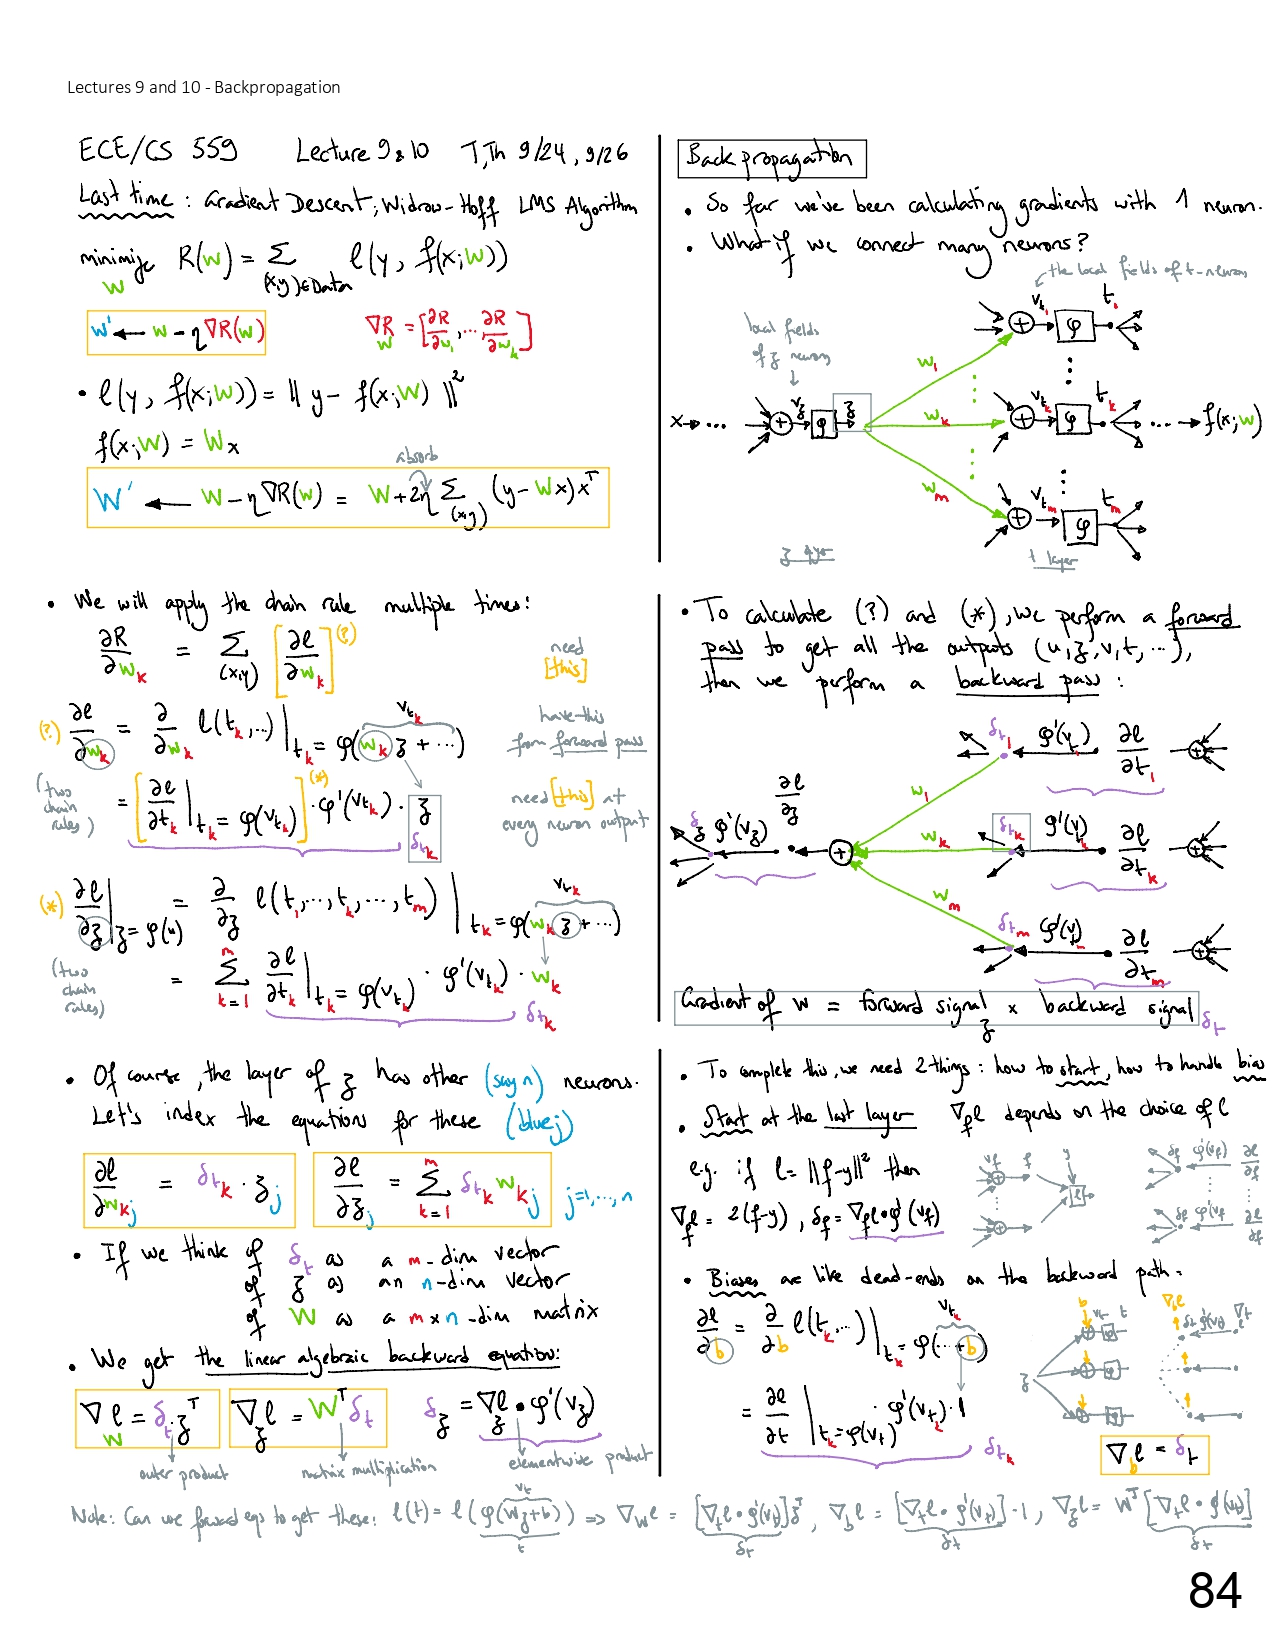 Lectures 9 and 10 - Backpropagation
ECE/CS 559 Lecture 9&10 T,Th 9/24, 9/26
Last time : Gradient Descent; Widrow-Hoff LMS Algorithm
minimize R(w) = Σ l(y, f(x;w))
w (x,y)∈Data
w' ← w - η∇R(w) ∇R = [∂R/∂w₁, ... ∂R/∂wₖ]
w
• l(y, f(x;w)) = || y - f(x;W) ||²
f(x;W) = Wx
absorb
W' ← W - η∇R(w) = W + 2η Σ (y - Wx)xᵀ
(x,y)
Back propagation
• So far we've been calculating gradients with 1 neuron.
• What if we connect many neurons?
the local fields of t-neuron
local fields
of z neuron
v_t₁ φ t₁
w₁
x → ... + v_z φ z wₖ + v_tₖ φ tₖ ... → f(x;w)
wₘ
v_tₘ φ tₘ
t layer
• We will apply the chain rule multiple times:
∂R/∂wₖ = Σ [∂l/∂wₖ] (?)
(x,y)
need
[this]
(?) ∂l/∂wₖ = ∂/∂wₖ l(tₖ,...) | tₖ = φ(wₖ z + ...) v_tₖ
have this
from forward pass
(two chain rules) = [∂l/∂tₖ | tₖ = φ(v_tₖ)] (*) · φ'(v_tₖ) · z
δ_tₖ
need [this] at
every neuron output
(*) ∂l/∂z | z = φ(u) = ∂/∂z l(t₁,...,tₖ,...,tₘ) | tₖ = φ(wₖ z + ...) v_tₖ
(two chain rules) = Σ_{k=1}^{m} ∂l/∂tₖ | tₖ = φ(v_tₖ) · φ'(v_tₖ) · wₖ
δ_tₖ
• To calculate (?) and (*), we perform a forward
pass to get all the outputs (u, z, v, t, ...),
then we perform a backward pass :
δ_t₁ φ'(v_t₁) ∂l/∂t₁ +
w₁
δ_z φ'(v_z) ∂l/∂z + wₖ δ_tₖ φ'(v_tₖ) ∂l/∂tₖ +
wₘ
δ_tₘ φ'(v_tₘ) ∂l/∂tₘ +
Gradient of w = forward signal × backward signal
z δ_t
• Of course, the layer of z has other (say n) neurons.
Let's index the equations for these (blue j)
∂l/∂wₖⱼ = δ_tₖ · zⱼ ∂l/∂zⱼ = Σ_{k=1}^{m} δ_tₖ wₖⱼ j=1,...,n
• If we think of δ_t as a m-dim vector
of z as an n-dim vector
of W as a m×n-dim matrix
• We get the linear algebraic backward equation:
∇_W l = δ_t · zᵀ ∇_z l = Wᵀ δ_t δ_z = ∇_z l • φ'(v_z)
outer product matrix multiplication elementwise product
• To complete this, we need 2 things : how to start, how to handle bias
• Start at the last layer ∇_f l depends on the choice of l
e.g. if l = ||f-y||² then
∇_f l = 2(f-y), δ_f = ∇_f l • φ'(v_f)
v_f f y l
δ_f φ'(v_f) ∂l/∂f
δ_f φ'(v_f) ∂l/∂f
• Biases are like dead-ends on the backward path.
∂l/∂b = ∂/∂b l(tₖ,...) | tₖ = φ(... + b) v_tₖ
= ∂l/∂t | tₖ = φ(v_t) · φ'(v_tₖ) · 1
δ_tₖ
b v_t t
z
∇_b l δ_t φ'(v_t) ∇_t l
∇_b l = δ_t
Note: Can use forward eqs to get these: l(t) = l(φ(Wz+b)) ⇒ ∇_W l = [∇_t l • φ'(v_t)] zᵀ, ∇_b l = [∇_t l • φ'(v_t)] · 1, ∇_z l = Wᵀ [∇_t l • φ'(v_t)]
v_t t δ_t δ_t δ_t
84